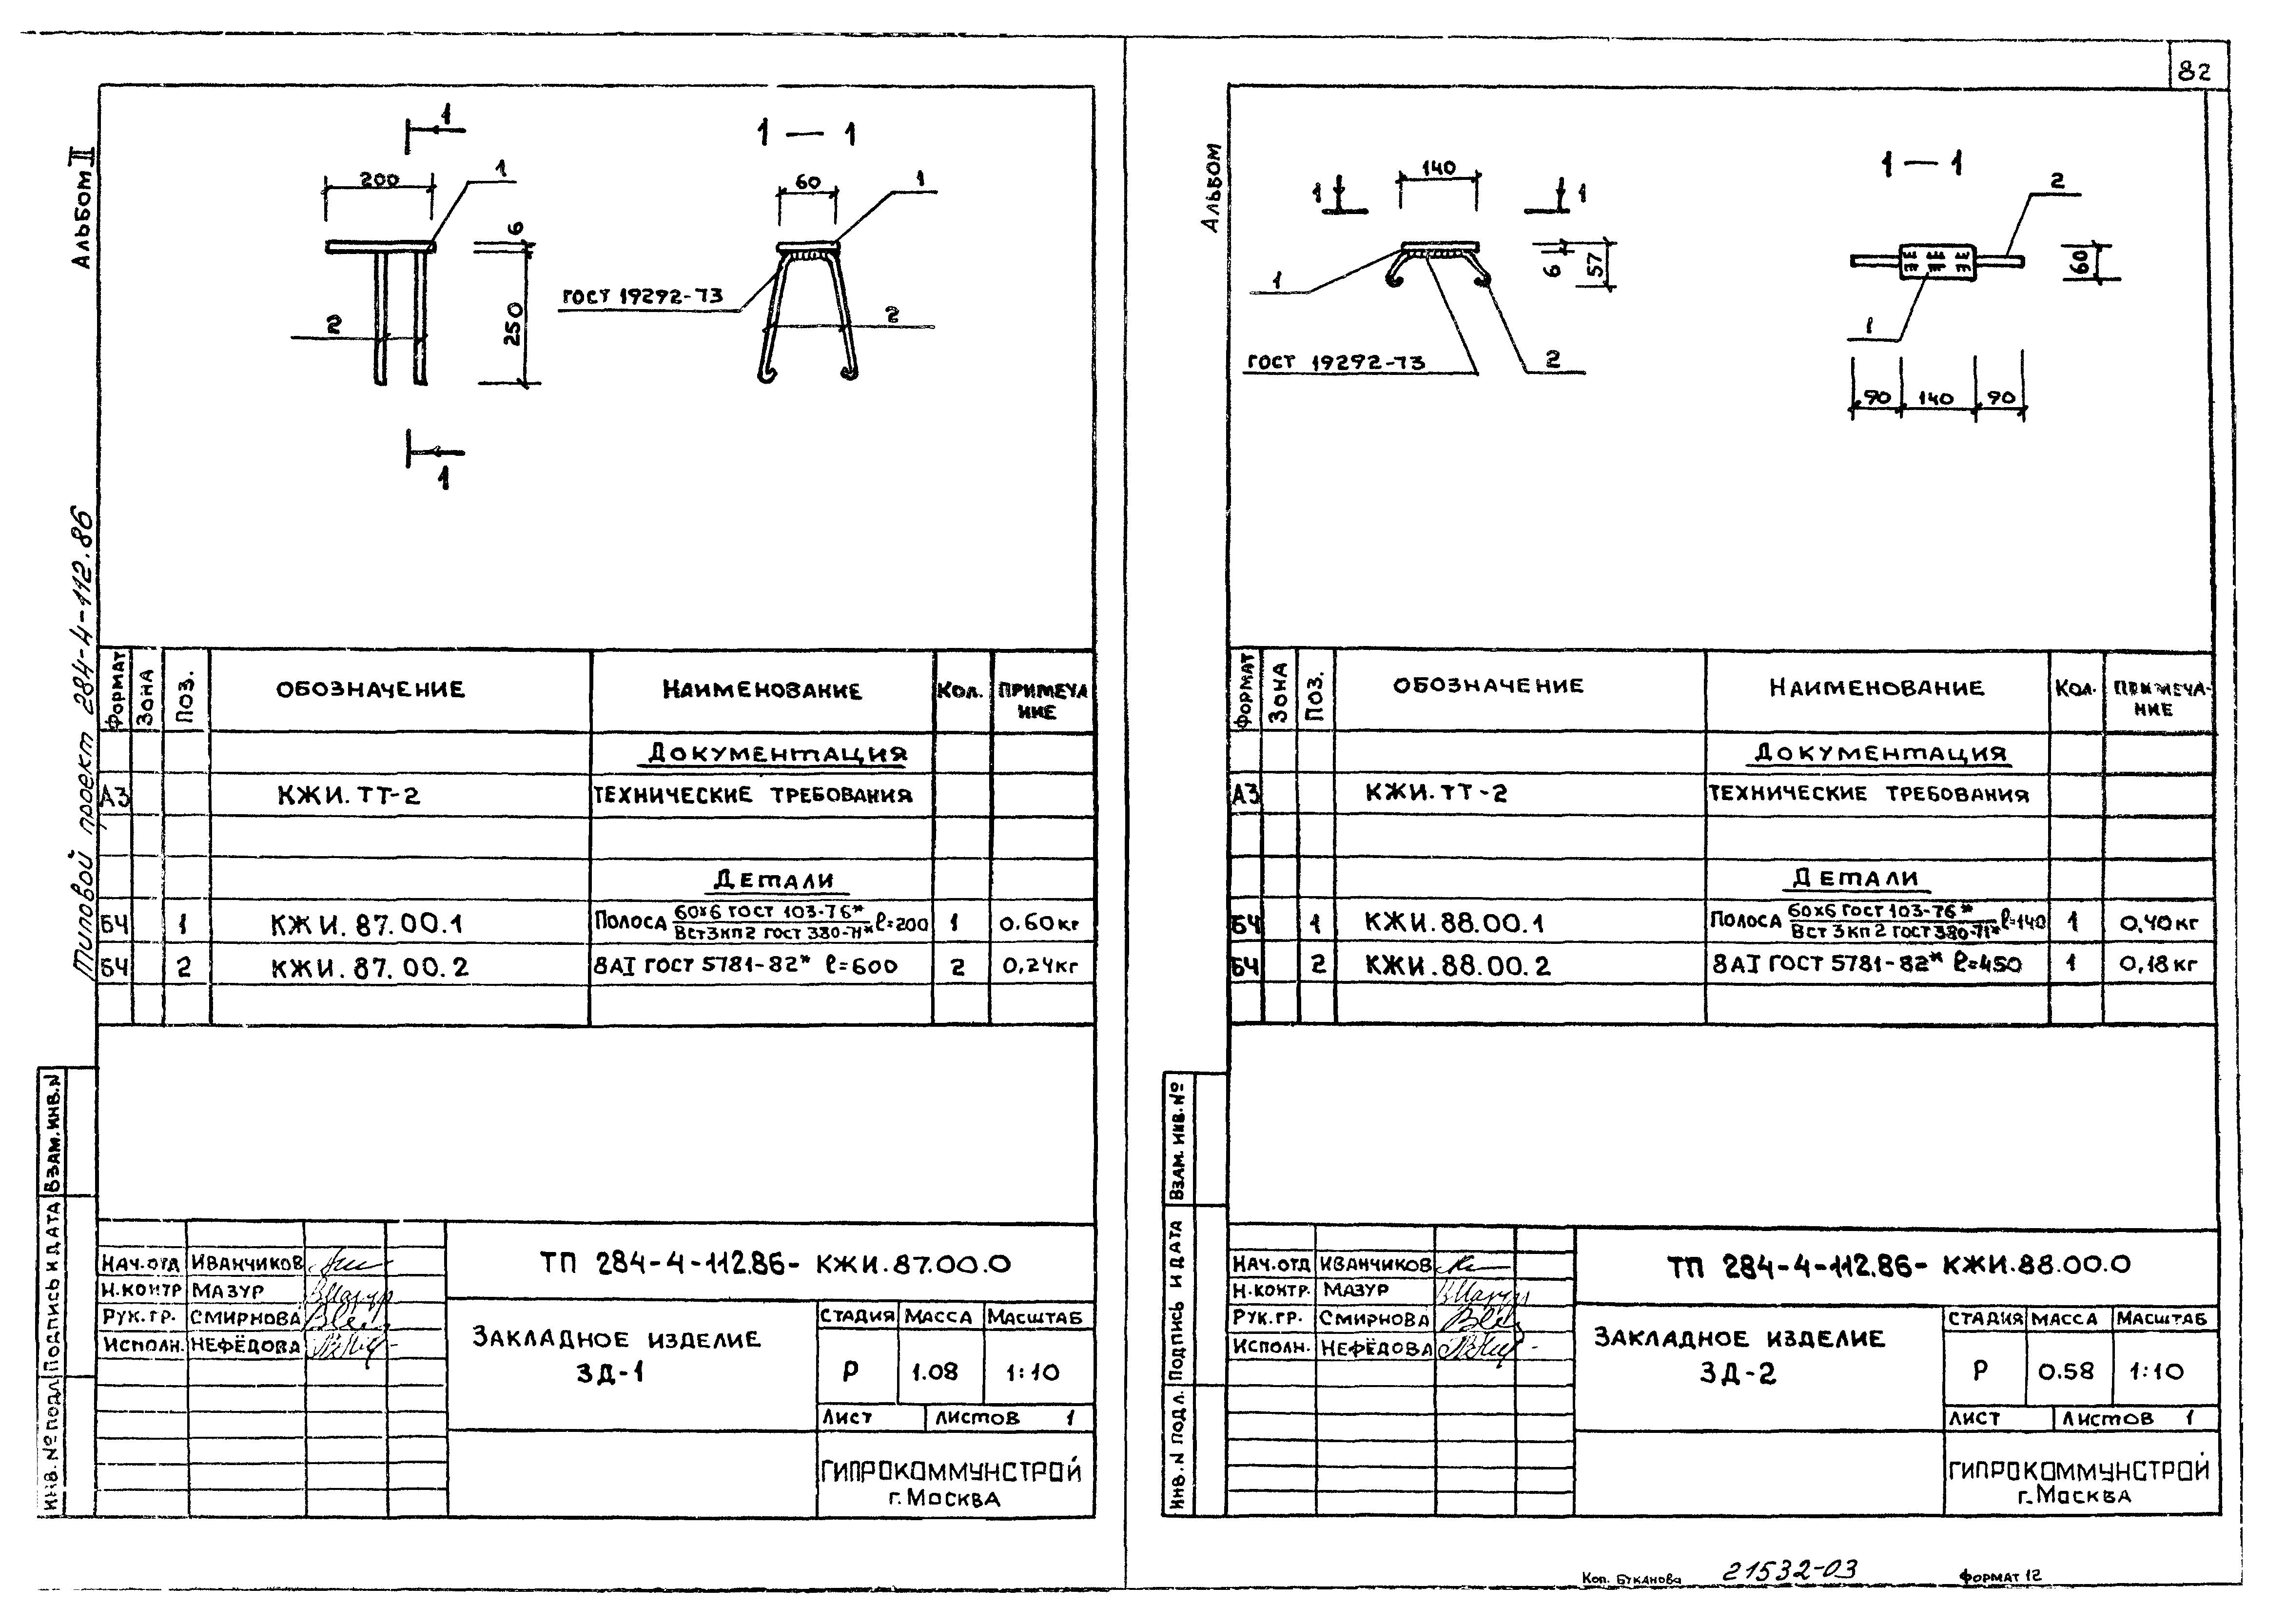 82
Альбом II
Типовой проект 284-4-112.86
1
200
1
6
250
2
1
1 — 1
60
1
ГОСТ 19292-73
2
ФОРМАТ ЗОНА ПОЗ. ОБОЗНАЧЕНИЕ НАИМЕНОВАНИЕ КОЛ. ПРИМЕЧА
НИЕ
ДОКУМЕНТАЦИЯ
А3 КЖИ.ТТ-2 ТЕХНИЧЕСКИЕ ТРЕБОВАНИЯ
ДЕТАЛИ
БЧ 1 КЖИ.87.00.1 ПОЛОСА 60х6 ГОСТ 103-76* / ВСт3кп2 ГОСТ 380-71* ℓ=200 1 0.60кг
БЧ 2 КЖИ.87.00.2 8АI ГОСТ 5781-82* ℓ=600 2 0,24кг
ИНВ. № ПОДЛ ПОДПИСЬ И ДАТА ВЗАМ.ИНВ.N
НАЧ.ОТД ИВАНЧИКОВ
Н.КОНТР МАЗУР
РУК.ГР. СМИРНОВА
ИСПОЛН. НЕФЁДОВА
ТП 284-4-112.86- КЖИ.87.00.0
ЗАКЛАДНОЕ ИЗДЕЛИЕ
ЗД-1
СТАДИЯ МАССА МАСШТАБ
Р 1.08 1:10
ЛИСТ ЛИСТОВ 1
ГИПРОКОММУНСТРОЙ
г. МОСКВА
АЛЬБОМ
1 1
140
6
57
1
ГОСТ 19292-73
2
1 — 1
2
60
1
90 140 90
ФОРМАТ ЗОНА ПОЗ. ОБОЗНАЧЕНИЕ НАИМЕНОВАНИЕ КОЛ. ПРИМЕЧА-
НИЕ
ДОКУМЕНТАЦИЯ
А3 КЖИ.ТТ-2 ТЕХНИЧЕСКИЕ ТРЕБОВАНИЯ
ДЕТАЛИ
БЧ 1 КЖИ.88.00.1 ПОЛОСА 60х6 ГОСТ 103-76* / ВСт3кп2 ГОСТ 380-71* ℓ=140 1 0,40кг
БЧ 2 КЖИ.88.00.2 8АI ГОСТ 5781-82* ℓ=450 1 0,18кг
ИНВ. N ПОДЛ. ПОДПИСЬ И ДАТА ВЗАМ. ИНВ. №
НАЧ.ОТД ИВАНЧИКОВ
Н.КОНТР. МАЗУР
РУК.ГР. СМИРНОВА
ИСПОЛН. НЕФЁДОВА
ТП 284-4-112.86- КЖИ.88.00.0
ЗАКЛАДНОЕ ИЗДЕЛИЕ
ЗД-2
СТАДИЯ МАССА МАСШТАБ
Р 0.58 1:10
ЛИСТ ЛИСТОВ 1
ГИПРОКОММУНСТРОЙ
г. МОСКВА
Коп. Буканова 21532-03 ФОРМАТ 12